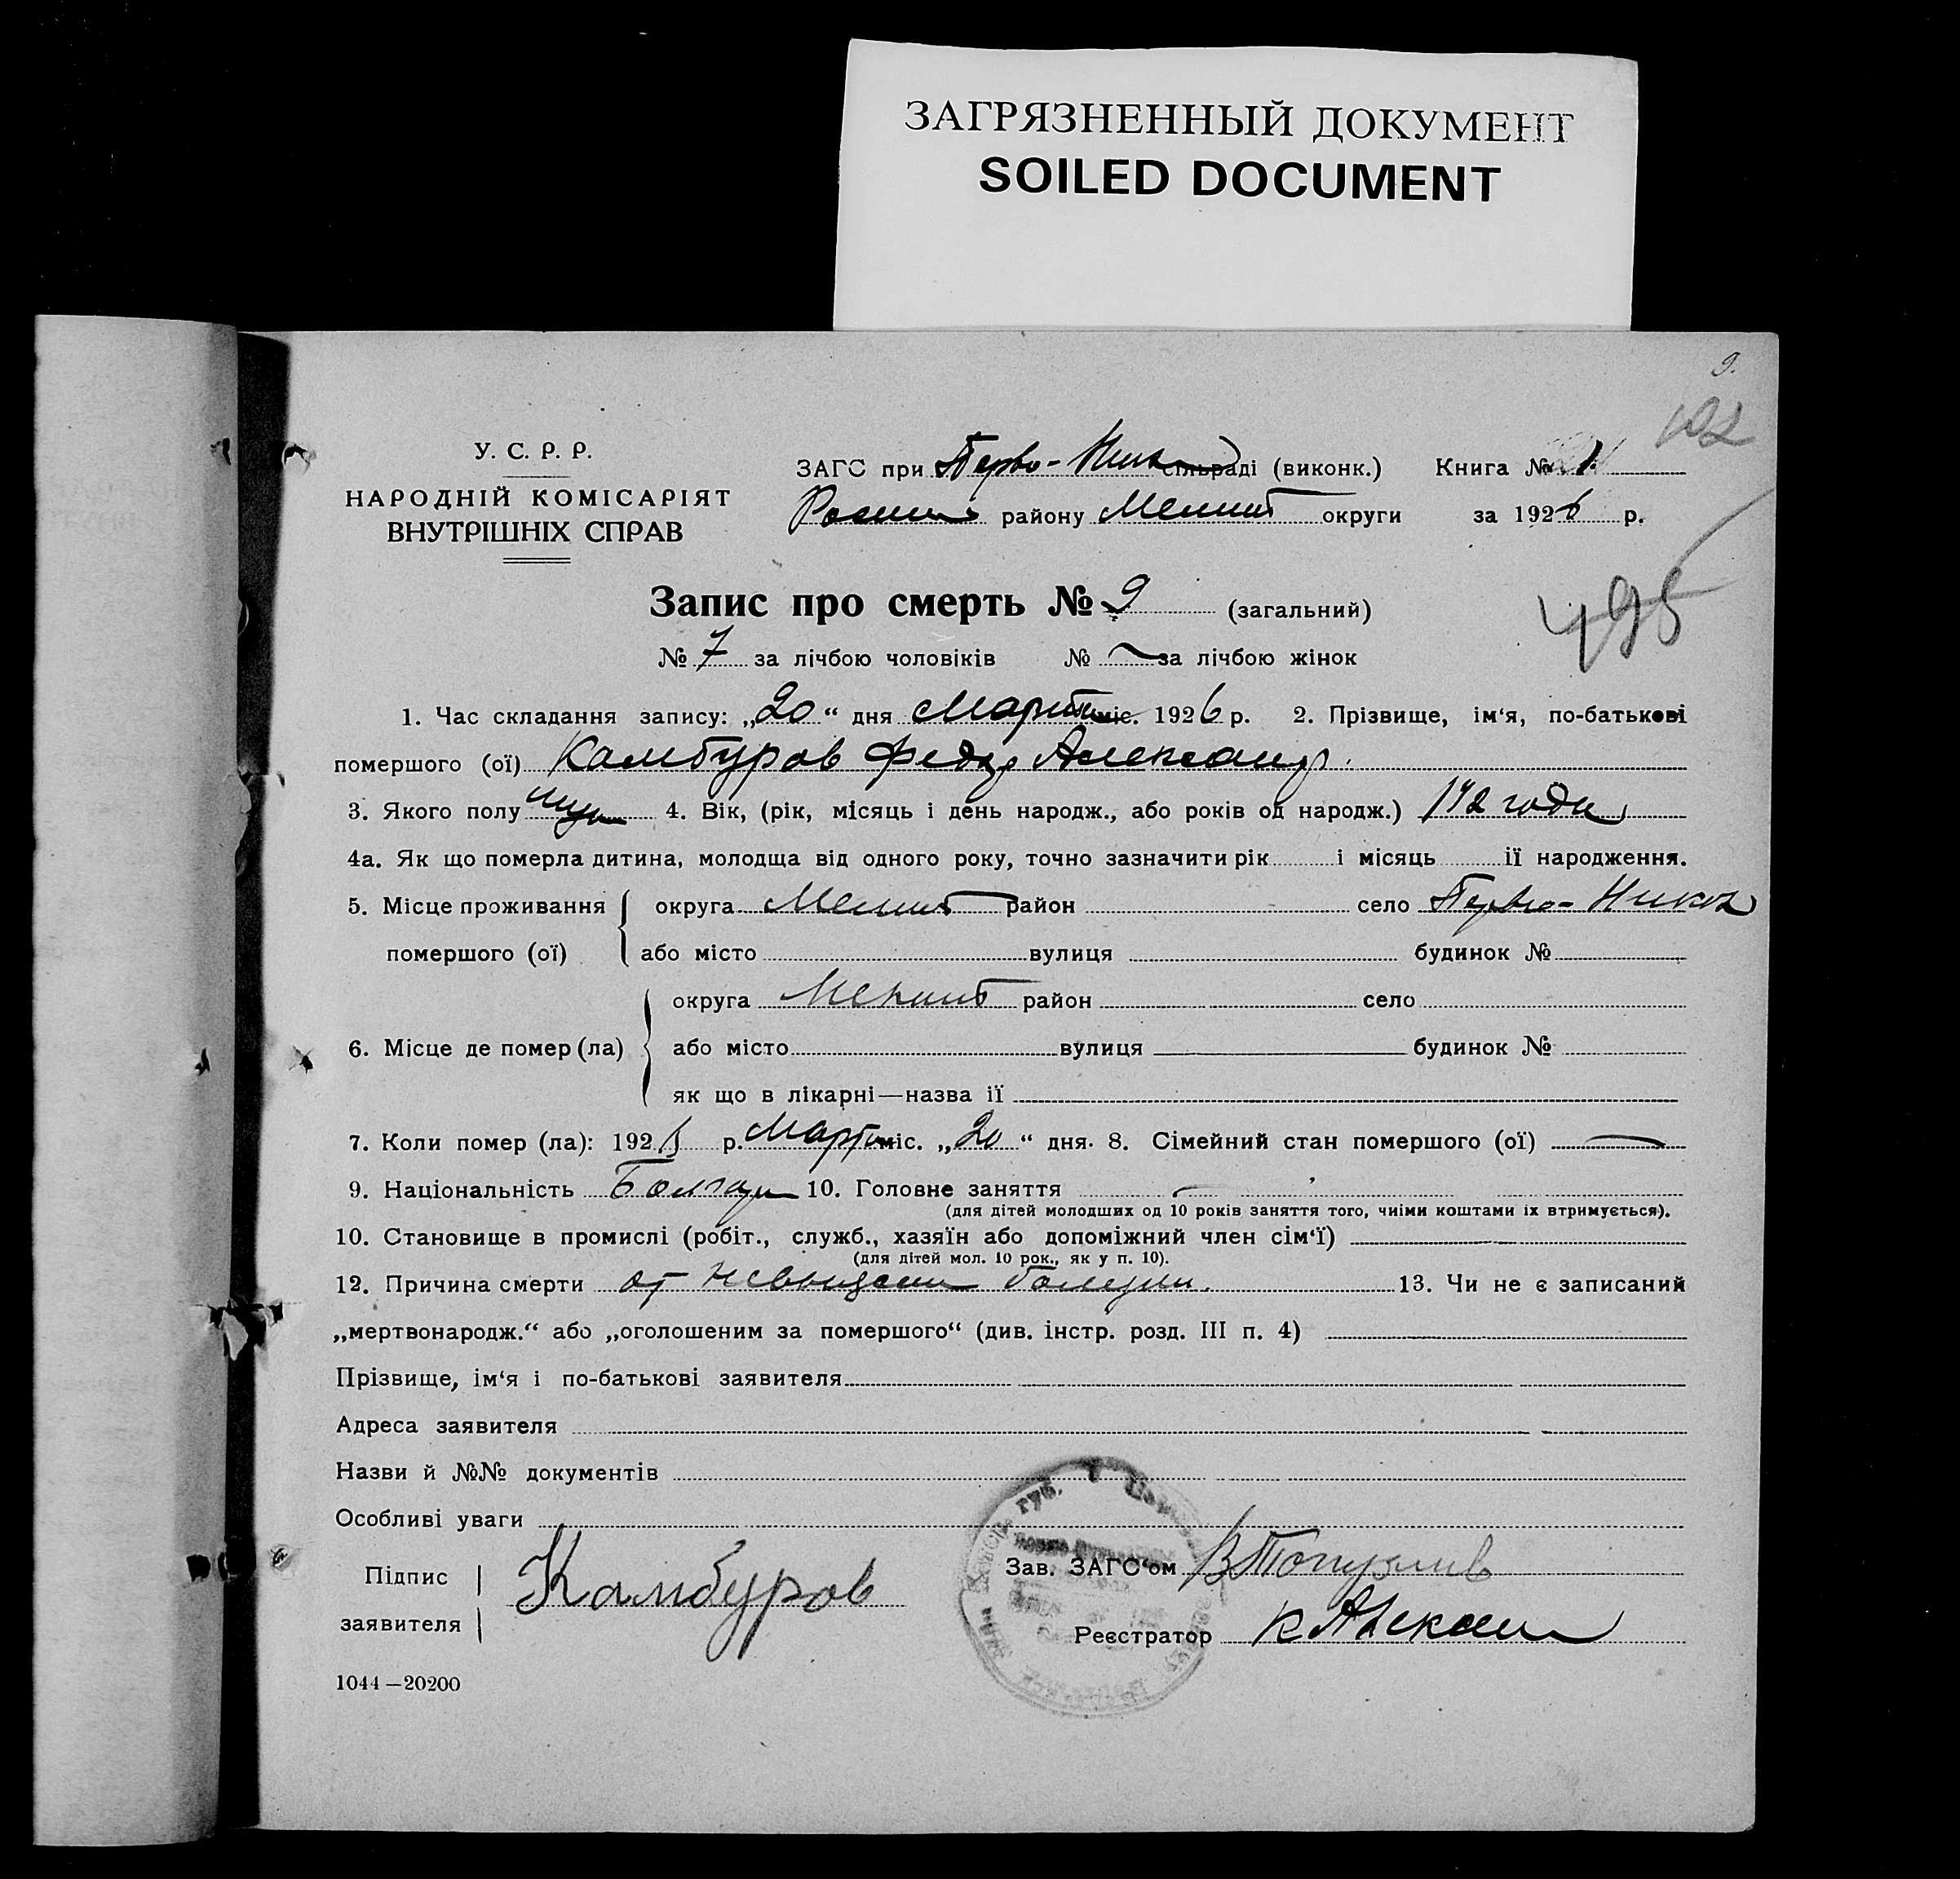 ЗАГРЯЗНЕННЫЙ ДОКУМЕНТ
SOILED DOCUMENT
9.
102
У. С. Р. Р.
НАРОДНІЙ КОМІСАРІЯТ
ВНУТРІШНІХ СПРАВ
ЗАГС при Перво-Ник сільраді (виконк.) Книга № 1
району Мелит округи за 1926 р.
495
Запис про смерть № 9 (загальний)
№ 7 за лічбою чоловіків № — за лічбою жінок
1. Час складання запису: „20“ дня Марта міс. 1926 р. 2. Прізвище, ім‘я, по-батькові
помершого (ої) Камбуров Федор Александр.
3. Якого полу муж 4. Вік, (рік, місяць і день народж., або років од народж.) 1½ года
4а. Як що померла дитина, молодща від одного року, точно зазначити рік і місяць ії народження.
5. Місце проживання округа Мелит район село Перво-Никол
помершого (ої) або місто вулиця будинок №
округа Мелит район село
6. Місце де помер (ла) або місто вулиця будинок №
як що в лікарні—назва ії
7. Коли помер (ла): 1926 р. Март міс. „20“ дня. 8. Сімейний стан помершого (ої) —
9. Національність Болгар 10. Головне заняття —
(для дітей молодших од 10 років заняття того, чиїми коштами їх втримується).
10. Становище в промислі (робіт., служб., хазяїн або допоміжний член сім‘ї)
(для дітей мол. 10 рок., як у п. 10).
12. Причина смерти от болезни. 13. Чи не є записаний
„мертвонародж.“ або „оголошеним за помершого“ (див. інстр. розд. III п. 4)
Прізвище, ім‘я і по-батькові заявителя
Адреса заявителя
Назви й №№ документів
Особливі уваги
губ.
Підпис
заявителя
Камбуров
Зав. ЗАГС‘ом
Реєстратор
1044—20200